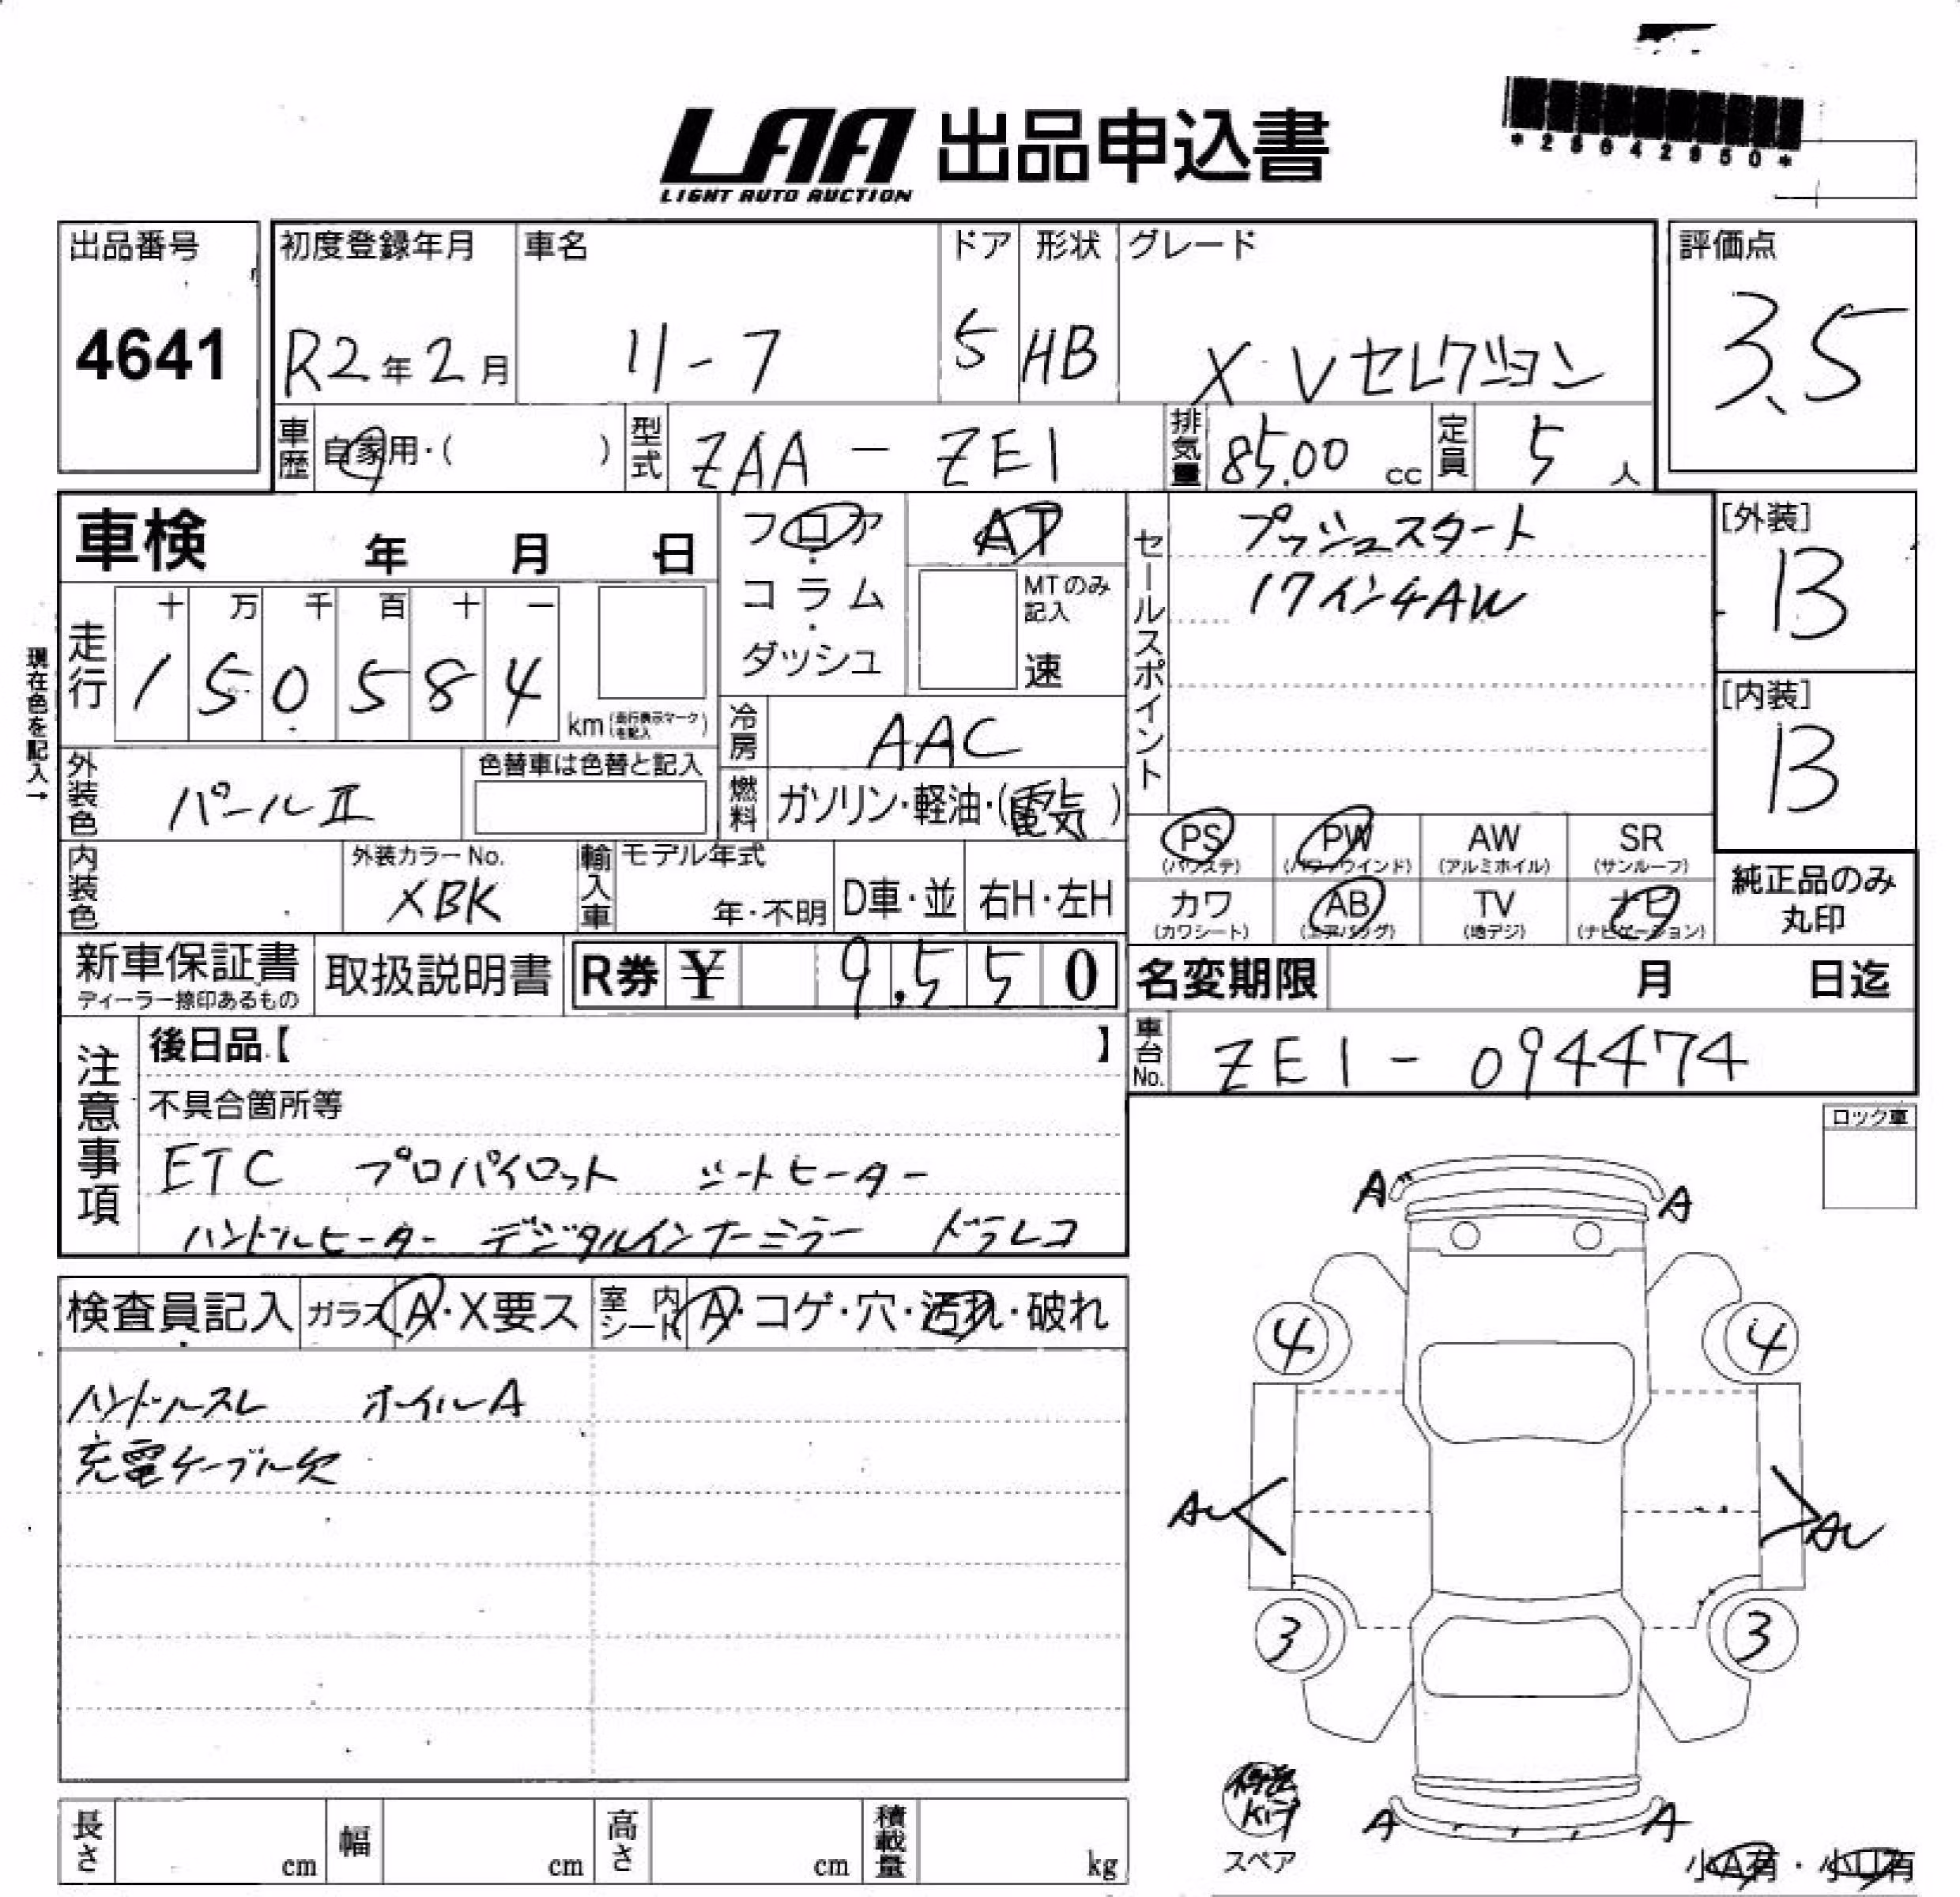 LAA 出品申込書
LIGHT AUTO AUCTION
出品番号
4641
初度登録年月
R2年2月
車名
リーフ
ドア
5
形状
HB
グレード
X Vセレクション
評価点
3.5
車歴
自家用・( )
型式
ZAA - ZE1
排気量
85.00 cc
定員
5人
車検 年 月 日
フロア・コラム・ダッシュ
AT
MTのみ記入
速
走行
十 万 千 百 十 一
1 5 0 5 8 4
km (走行表示マークを記入)
現在色を記入→
冷房
AAC
外装色
パールⅡ
色替車は色替と記入
燃料
ガソリン・軽油・(電気)
内装色
外装カラーNo.
XBK
輸入車
モデル年式
年・不明
D車・並
右H・左H
新車保証書
ディーラー捺印あるもの
取扱説明書
R券 ¥ 9,550
セールスポイント
プッシュスタート
17インチAW
[外装]
B
[内装]
B
PS
(パワステ)
PW
(パワーウインド)
AW
(アルミホイル)
SR
(サンルーフ)
カワ
(カワシート)
AB
(エアバッグ)
TV
(地デジ)
ナビ
(ナビゲーション)
純正品のみ
丸印
名変期限 月 日迄
車台No.
ZE1 - 094474
注意事項
後日品【 】
不具合箇所等
ETC プロパイロット シートヒーター
ハンドルヒーター デジタルインナーミラー ドラレコ
ロック車
検査員記入
ガラス A・X要ス
室内シート A・コゲ・穴・汚れ・破れ
ハンドルスレ ホイルA
充電ケーブル欠
A A
4 4
AU AU
3 3
A A
スペア
小A有・小U有
長さ cm
幅 cm
高さ cm
積載量 kg